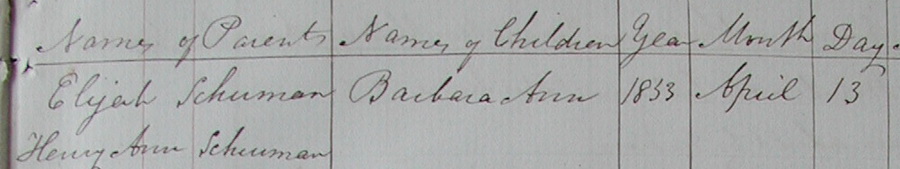 Names of Parents Names of Children Year Month Day.
Elijah Schuman Barbara Ann 1833 April 13
Henry Ann Schuman